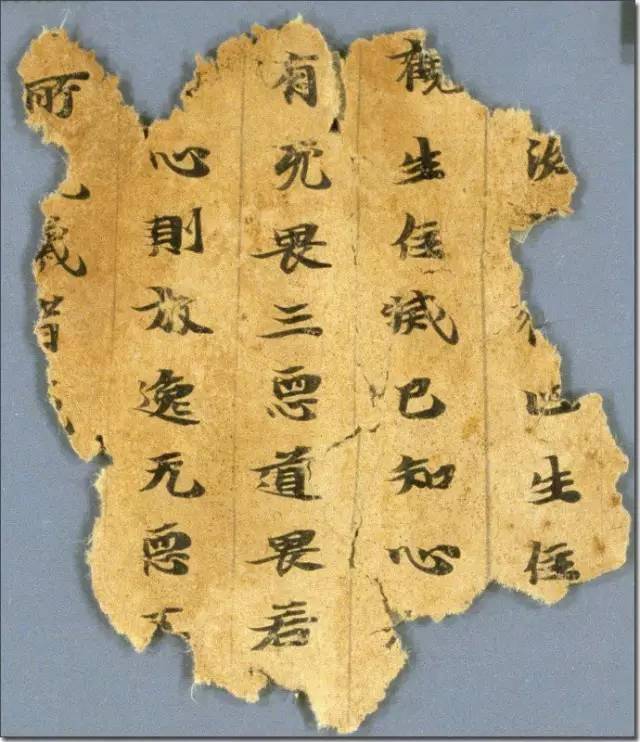 已生住
觀生住滅已知心
有死畏三惡道畏若
心則放逸无惡不
所義